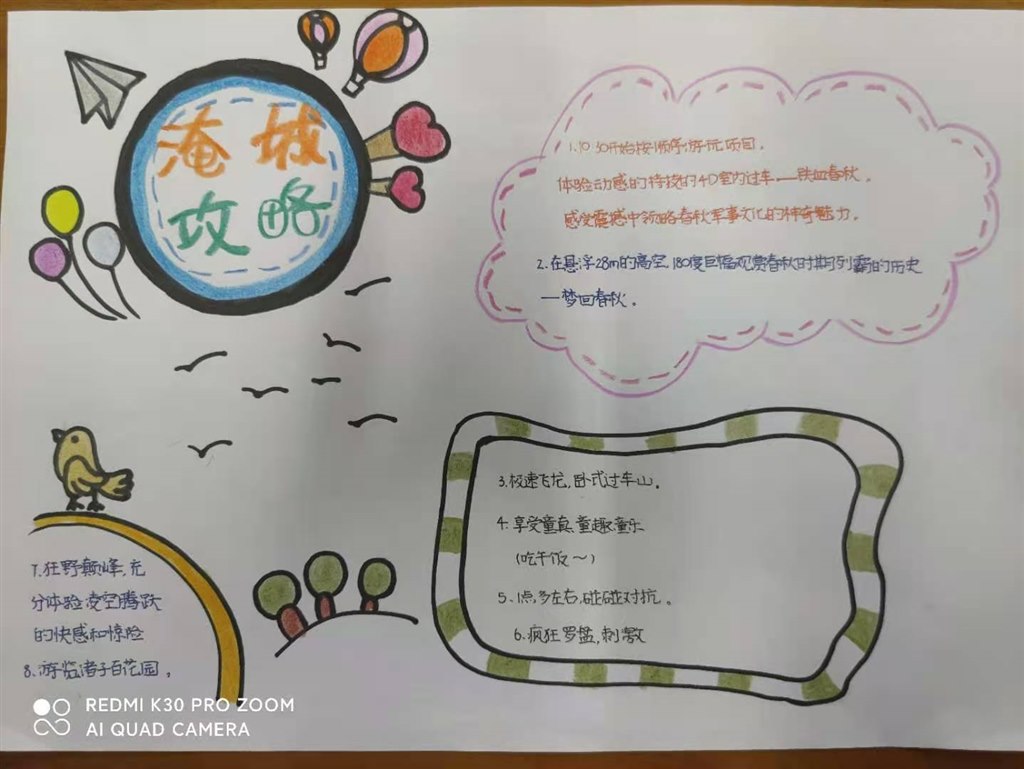 淹城
攻略
1.10:30开始按顺序游玩项目。
体验动感的特技的4D室内过车——铁血春秋。
感受震撼中领略春秋军事文化的神奇魅力。
2.在悬浮28m的高空,180度巨幅观赏春秋时期列霸的历史
—梦回春秋。
3.极速飞龙,卧式过车山。
4.享受童真、童趣、童乐
(吃午饭～)
5.1点多左右,碰碰对抗。
6.疯狂罗盘,刺激
7.狂野巅峰,充
分体验凌空腾跃
的快感和惊险
8.游览诸子百花园。
REDMI K30 PRO ZOOM
AI QUAD CAMERA